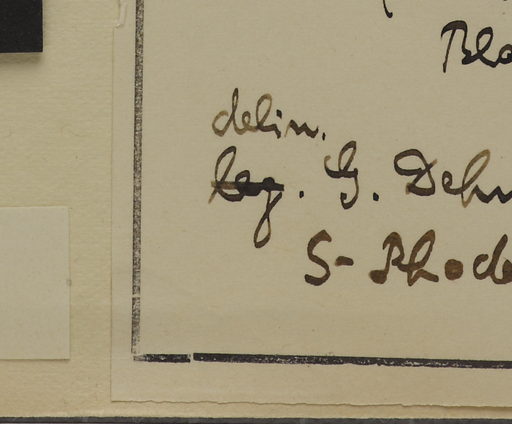 Bla
delin.
leg. G. Dehn
S- Rhode